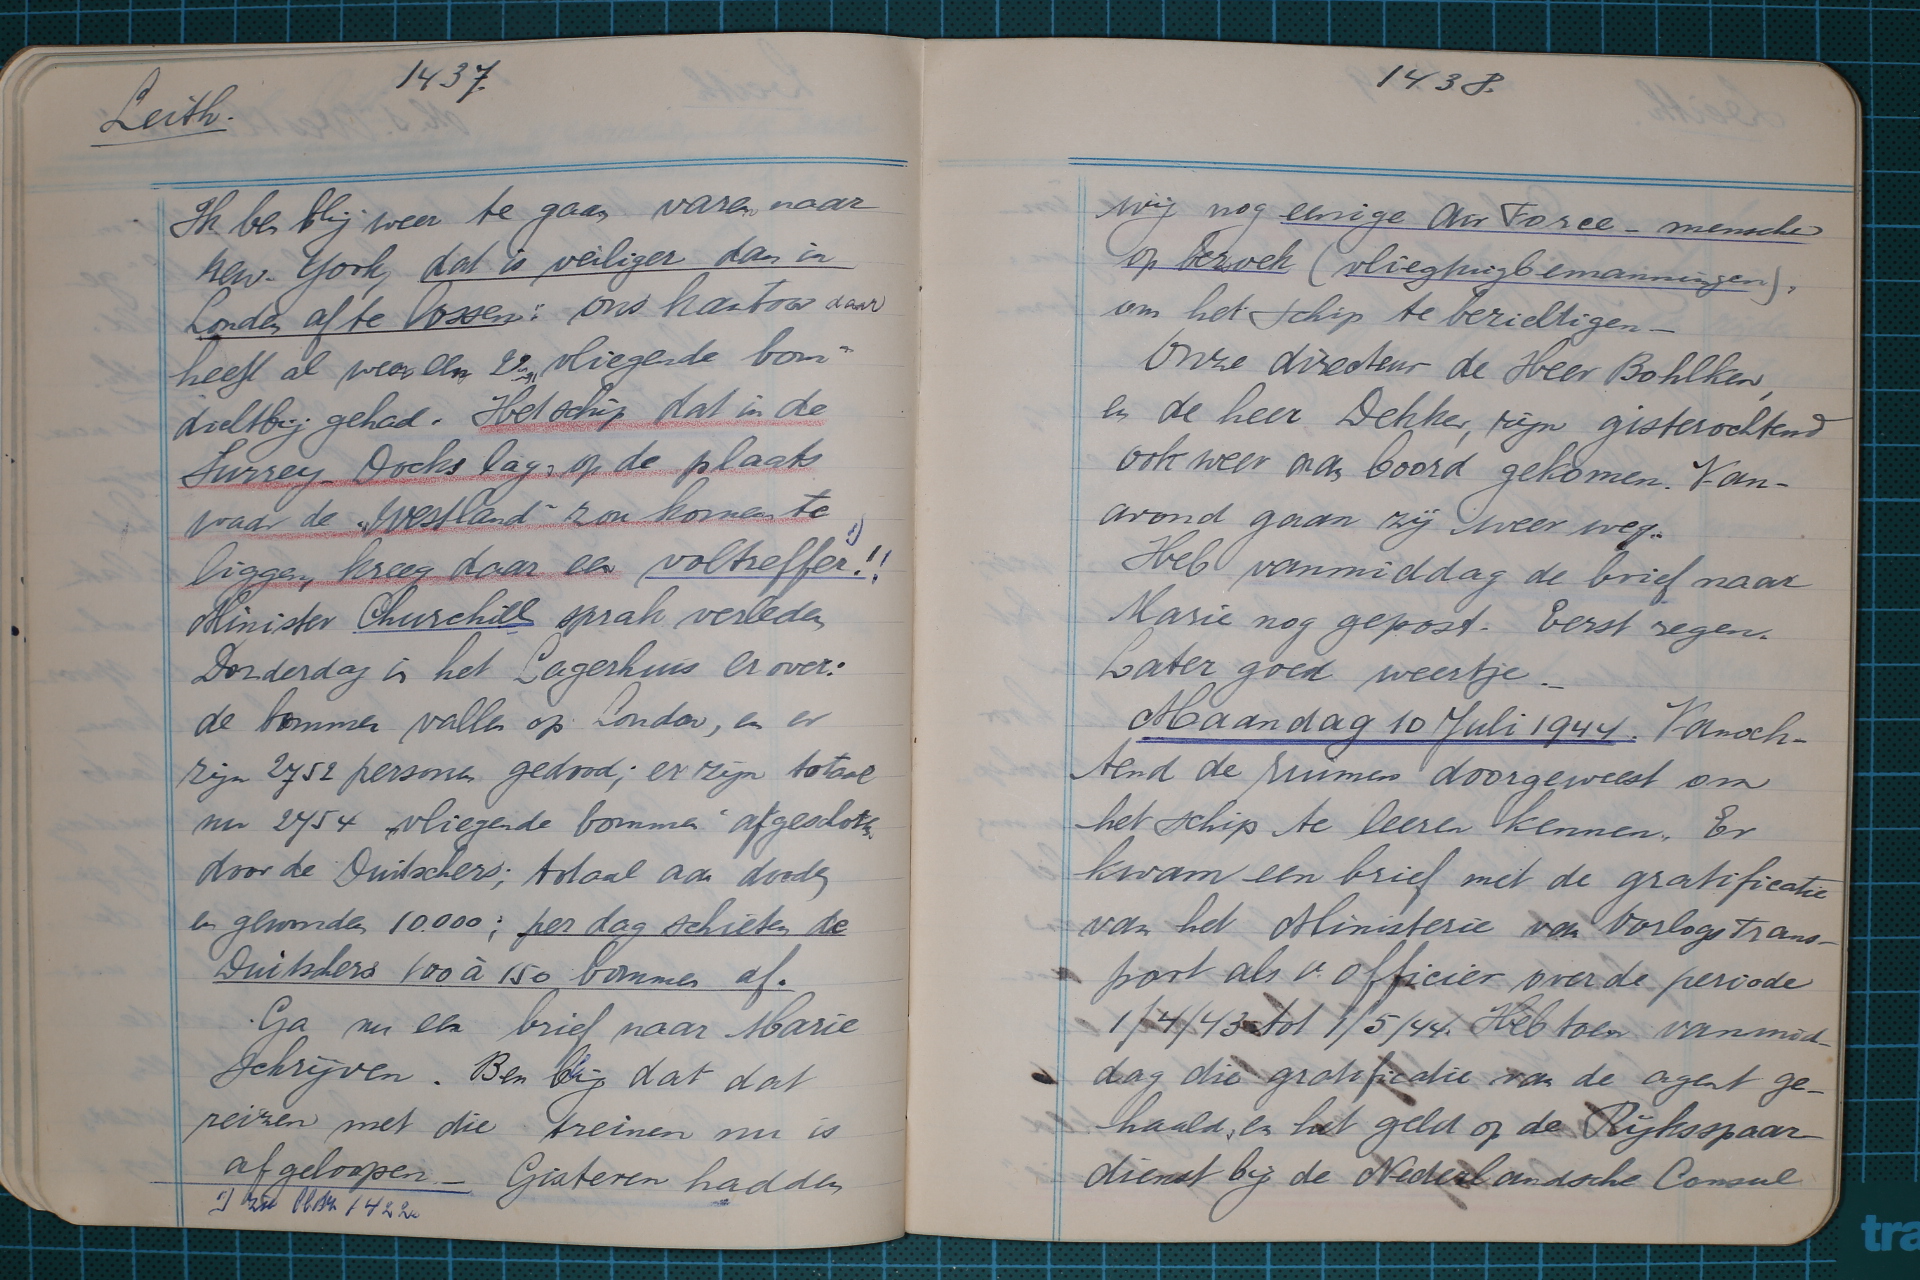 1437.
Leith.
Ik ben blij weer te gaan varen naar
New-York, dat is veiliger dan in
Londen af te lossen: ons kantoor daar
heeft al weer een 2e vliegende bom
dichtbij gehad. Het schip dat in de
Surrey-Docks lag, op de plaats
waar de "Westland" zou komen te
liggen, kreeg daar een voltreffer.!! 1)
Minister Churchill sprak verleden
Donderdag in het Lagerhuis er over:
de bommen vallen op Londen, en er
zijn 2752 personen gedood; er zijn totaal
nu 2754 "vliegende bommen" afgeschoten
door de Duitschers; totaal aan dooden
en gewonden 10.000; per dag schieten de
Duitschers 100 à 150 bommen af.
Ga nu een brief naar Marie
schrijven. Ben blij dat dat
reizen met die treinen nu is
afgeloopen_ Gisteren hadden
1) zie bldz 1422
1438.
wij nog eenige Air Force-mensche
op bezoek (vliegtuigbemanningen),
om het schip te bezichtigen_
Onze directeur de Heer Bohlken,
en de heer Dekker, zijn gisterochtend
ook weer aan boord gekomen. Van-
avond gaan zij weer weg.
Heb vanmiddag de brief naar
Marie nog gepost. Eerst regen.
Later goed weertje_
Maandag 10 Juli 1944. Vanoch-
tend de ruimen doorgeweest om
het schip te leeren kennen. Er
kwam een brief met de gratificatie
van het Ministerie van Oorlogs Trans-
port als 1e officier over de periode
1/4/43 tot 1/5/44. Heb toen vanmid-
dag die gratificatie van de agent ge-
haald, en het geld op de Rijksspaar-
dienst bij de Nederlandsche Consul
tra